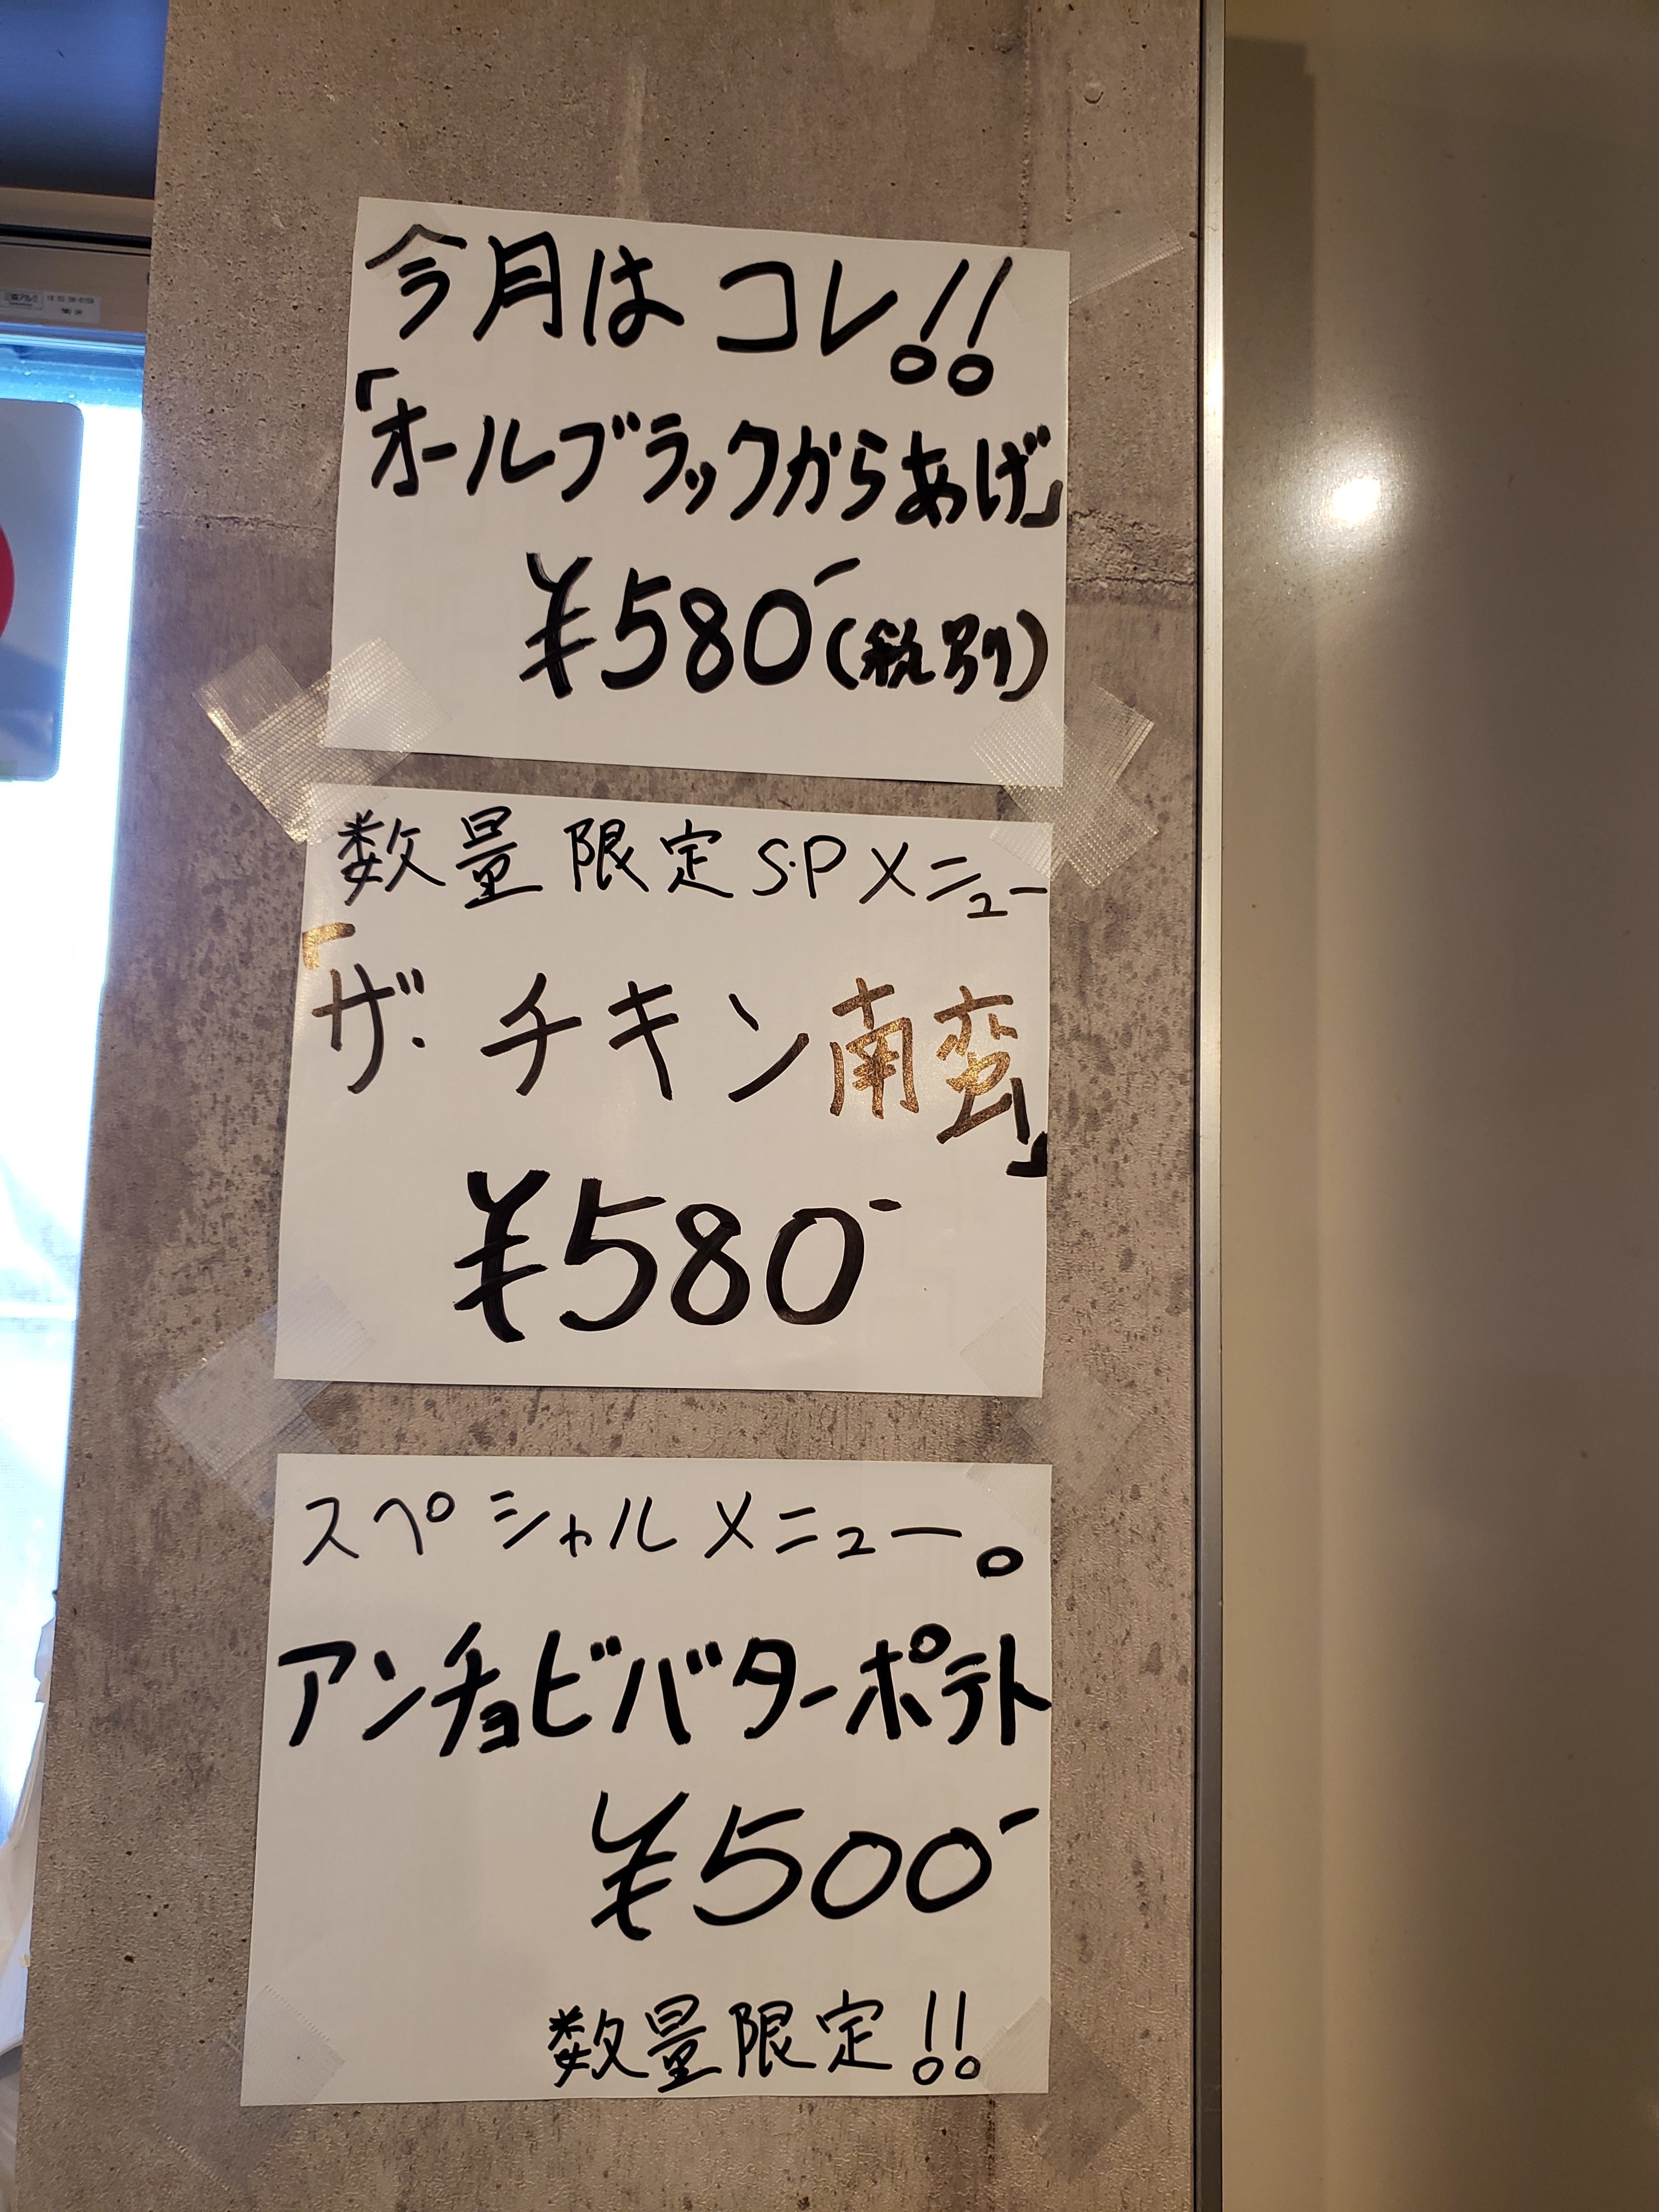 今月はコレ!!
「オールブラックからあげ」
¥580-(税別)
数量限定S.Pメニュー
「ザ・チキン南蛮」
¥580-
スペシャルメニュー。
アンチョビバターポテト
¥500-
数量限定!!